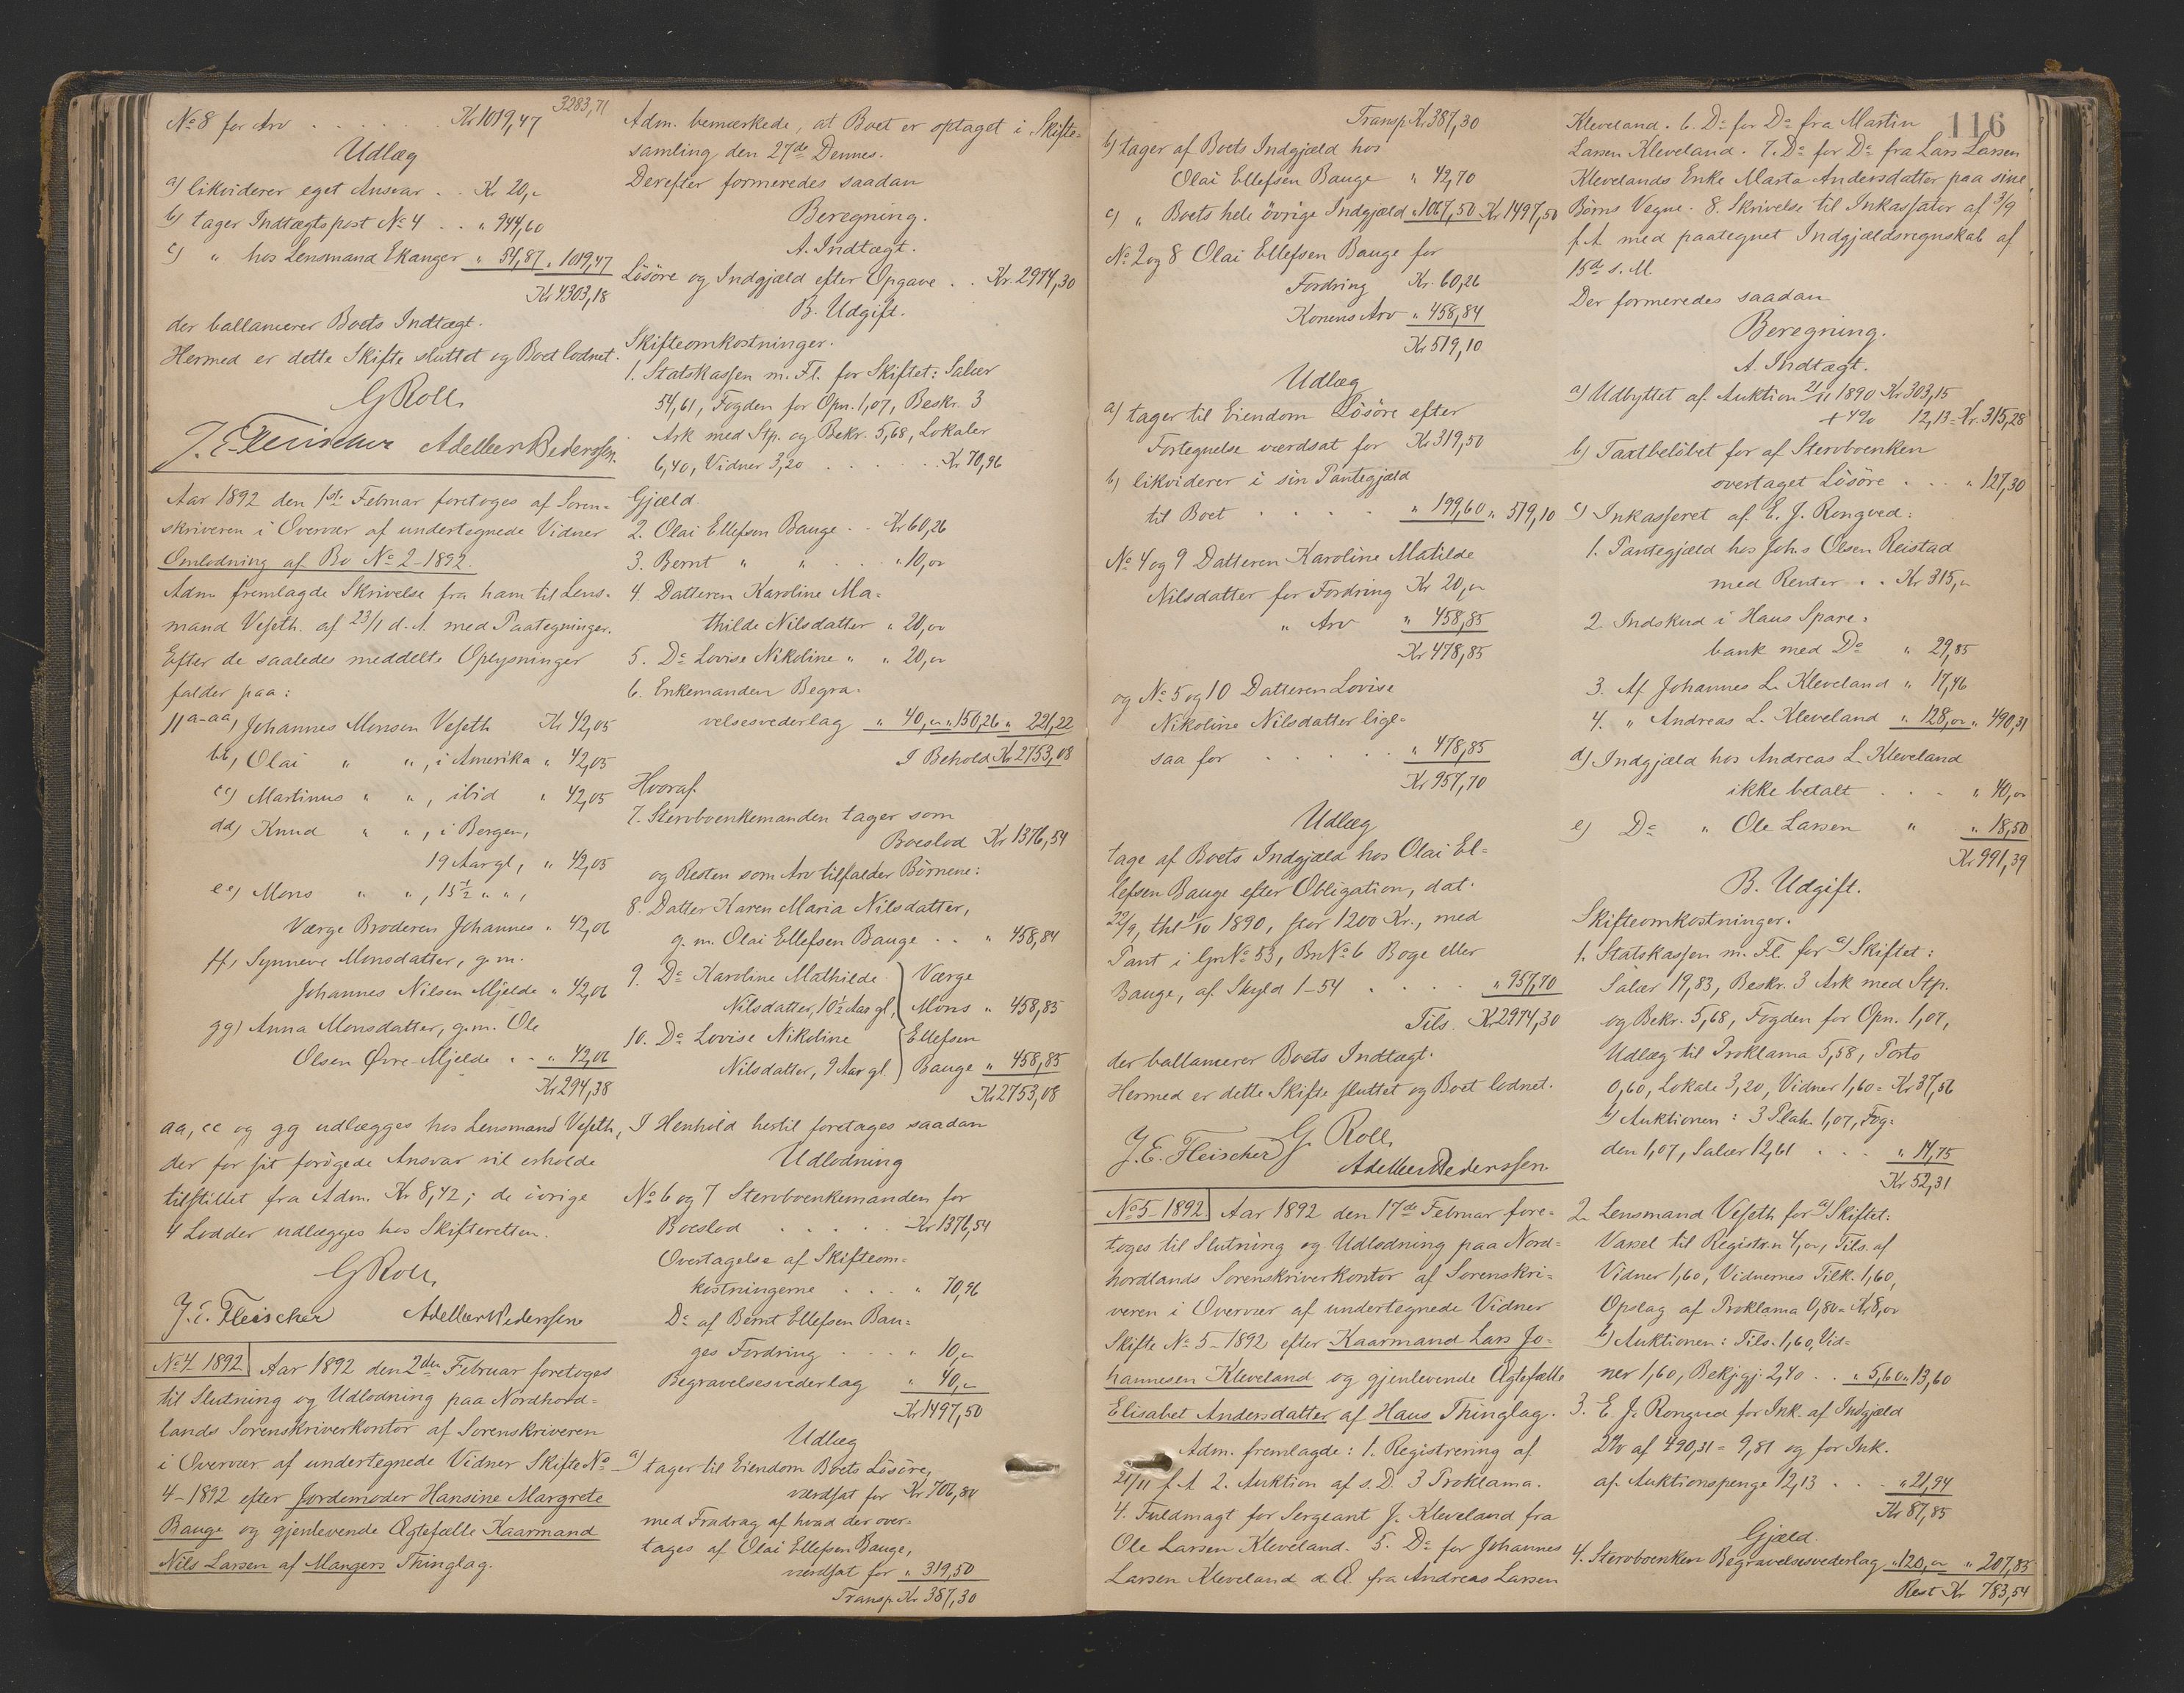 3283,71
No 8 for Arv . . . . . Kr 1019,47
Udlæg
a) likviderer eget Ansvar . . Kr 20,"
b) tager Indtægtspost No 4 . . " 944,60
c) " hos Lensmand Ekanger " 54,87 " 1019,47
Kr 4303,18
der ballancerer Boets Indtægt.
Hermed er dette Skifte sluttet og Boet lodnet.
G Roll
J. E. Fleischer Adeller Pederssen.
Aar 1892 den 1ste Februar foretoges af Soren-
skriveren i Overvær af undertegnede Vidner
Omlodning af Bo No 2 - 1892.
Adm fremlagde Skrivelse fra ham til Lens-
mand Veseth af 23/1 d. A. med Paategninger.
Efter de saaledes meddelte Oplysninger
falder paa:
11 a-aa, Johannes Monsen Veseth Kr 42,05
bb, Olai " ", i Amerika " 42,05
cc) Martinus " ", ibid " 42,05
dd, Knud " ", i Bergen,
19 Aar gl, " 42,05
ee) Mons " ", 15 1/2 " ",
Værge Broderen Johannes " 42,06
ff, Synneve Monsdatter, g. m.
Johannes Nilsen Mjelde " 42,06
gg) Anna Monsdatter, g. m. Ole
Olsen Øvre-Mjelde . . " 42,06
Kr 294,38
aa, cc og gg udlægges hos Lensmand Veseth,
der for sit forögede Ansvar vil erholde
tilstillet fra Adm. Kr 8,42; de övrige
4 Lodder udlægges hos Skifteretten.
G Roll
J. E. Fleischer Adeller Pederssen
No 4 1892 Aar 1892 den 2den Februar foretoges
til Slutning og Udlodning paa Nordhord-
lands Sorenskriverkontor af Sorenskriveren
i Overvær af undertegnede Vidner Skifte No
4 - 1892 efter Jordemoder Hansine Margrete
Bauge og gjenlevende Ægtefælle Kaarmand
Nils Larsen af Mangers Thinglag.
Adm. bemærkede, at Boet er optaget i Skifte-
samling den 27de Dennes.
Derefter formeredes saadan
Beregning.
A. Indtægt.
Lösöre og Indgjæld efter Opgave . . Kr. 2974,30
B. Udgift.
Skifteomkostninger.
1. Statskassen m. Fl. for Skiftet: Salær
54,61, Fogden for Opn. 1,07, Beskr. 3
Ark med Stp. og Bekr. 5,68, Lokaler
6,40, Vidner 3,20 . . . . . Kr 70,96
Gjæld
2. Olai Ellefsen Bauge . . Kr 60,26
3. Bernt " " . . " 10,00
4. Datteren Karoline Ma-
thilde Nilsdatter " 20,00
5. Do Lovise Nikoline " " 20,00
6. Enkemanden Begra-
velsesvederlag " 40,00 " 150,26 " 221,22
I Behold Kr 2753,08
Hvoraf.
7. Stervboenkemanden tager som
Boeslod Kr 1376,54
og Resten som Arv tilfalder Börnene:
8. Datter Karen Maria Nilsdatter,
g. m. Olai Ellefsen Bauge . . " 458,84
9. Do Karoline Mathilde Værge
Nilsdatter, 10 1/2 Aar gl, Mons " 458,85
10. Do Lovise Nikoline Ellefsen
Nilsdatter, 9 Aar gl. Bauge " 458,85
Kr 2753,08
I Henhold hertil foretages saadan
Udlodning
No 6 og 7 Stervboenkemanden for
Boeslod . . . . . Kr 1376,54
Overtagelse af Skifteom-
kostningerne . . . . " 70,96
Do af Bernt Ellefsen Bau-
ges Fordring . . . . " 10,"
Begravelsesvederlag " 40,"
Kr 1497,50
Udlæg
a) tager til Eiendom Boets Lösöre,
værdsat for Kr 706,80
med Fradrag af hvad der over-
tages af Olai Ellefsen Bauge,
værdsat for " 319,50
Transp. Kr 387,30
Transp Kr 387,30
b) tager af Boets Indgjæld hos
Olai Ellefsen Bauge " 42,70
c) " Boets hele övrige Indgjæld " 1067,50 Kr 1497,50
No 2 og 8 Olai Ellefsen Bauge for
Fordring Kr. 60,26
Konens Arv " 458,84
Kr 519,10
Udlæg
a) tager til Eiendom Lösöre efter
Fortegnelse værdsat for Kr 319,50
b) likviderer i sin Pantegjæld
til Boet . . . . " 199,60 " 519,10
No 4 og 9 Datteren Karoline Matilde
Nilsdatter for Fordring Kr 20,"
" Arv " 458,85
Kr 478,85
og No 5 og 10 Datteren Lovise
Nikoline Nilsdatter lige-
saa for . . . . " 478,85
Kr 957,70
Udlæg
tage af Boets Indgjæld hos Olai El-
lefsen Bauge efter Obligation, dat.
22/9, thl 1/10 1890, stor 1200 Kr., med
Pant i Gn No 53, Bn No 6 Boge eller
Bauge, af Skyld 1-54 . . . . " 957,70
Tils. Kr 2974,30
der ballancerer Boets Indtægt.
Hermed er dette Skifte sluttet og Boet lodnet.
G. Roll
J. E. Fleischer Adeller Pederssen
No 5 - 1892 Aar 1892 den 17de Februar fore-
toges til Slutning og Udlodning paa Nord-
hordlands Sorenskriverkontor af Sorenskri-
veren i Overvær af undertegnede Vidner
Skifte No 5 - 1892 efter Kaarmand Lars Jo-
hannesen Kleveland og gjenlevende Ægtefælle
Elisabet Andersdatter af Haus Thinglag.
Adm. fremlagde: 1. Registrering af
21/11 f. A 2. Auktion af s. D. 3 Proklama.
4. Fuldmagt for Sergeant J. Kleveland fra
Ole Larsen Kleveland. 5. Do for Johannes
Larsen Kleveland d. Æ. fra Andreas Larsen
116
Kleveland. 6. Do for Do fra Martin
Larsen Kleveland. 7. Do for Do fra Lars Larsen
Klevelands Enke Marta Andersdatter paa sine
Börns Vegne. 8. Skrivelse til Inkassator af 3/9
f. A med paategnet Indgjældsregnskab af
15de s. M
Der formeredes saadan
Beregning.
A. Indtægt.
a) Udbyttet af Auktion 21/11 1890 Kr 303,15
+ 4% 12,13 = Kr. 315,28
b) Taxtbelöbet for af Stervboenken
overtaget Lösöre . . . " 127,30
c) Inkasseret af E. J. Rongved:
1. Pantegjæld hos Johs Olsen Reistad
med Renter . . Kr 315,"
2 Indskud i Haus Spare-
bank med Do " 29,85
3. Af Johannes L. Kleveland " 17,46
4. " Andreas L. Kleveland " 128,00 " 490,31
d) Indgjæld hos Andreas L. Kleveland
ikke betalt . . . " 40,00
e) Do " Ole Larsen " " 18,50
Kr 991,39
B. Udgift.
Skifteomkostninger.
1. Statskassen m. Fl. for a) Skiftet:
Salær 19,83, Beskr. 3 Ark med Stp.
og Bekr. 5,68, Fogden for Opn. 1,07,
Udlæg til Proklama 5,58, Porto
0,60, Lokale 3,20, Vidner 1,60 = Kr 37,56
b) Auktionen: 3 Plak. 1,07, Fog-
den 1,07, Salær 12,61 . . . " 14,75
Kr 52,31
2 Lensmand Veseth for a) Skiftet:
Varsel til Registr.n 4,00, Tils. af
Vidner 1,60, Vidnernes Tilk. 1,60,
Opslag af Proklama 0,80 = Kr 8,00
b) Auktionen: Tils. 1,60, Vid-
ner 1,60, Bekjgj. 2,40 . . " 5,60 " 13,60
3. E. J. Rongved for Ink. af Indgjæld
2% af 490,31 = 9,81 og for Ink.
af Auktionspenge 12,13 . . . " 21,94
Kr 87,85
Gjæld.
4. Stervboenken Begravelsesvederlag " 120,00 " 207,85
Rest Kr 783,54